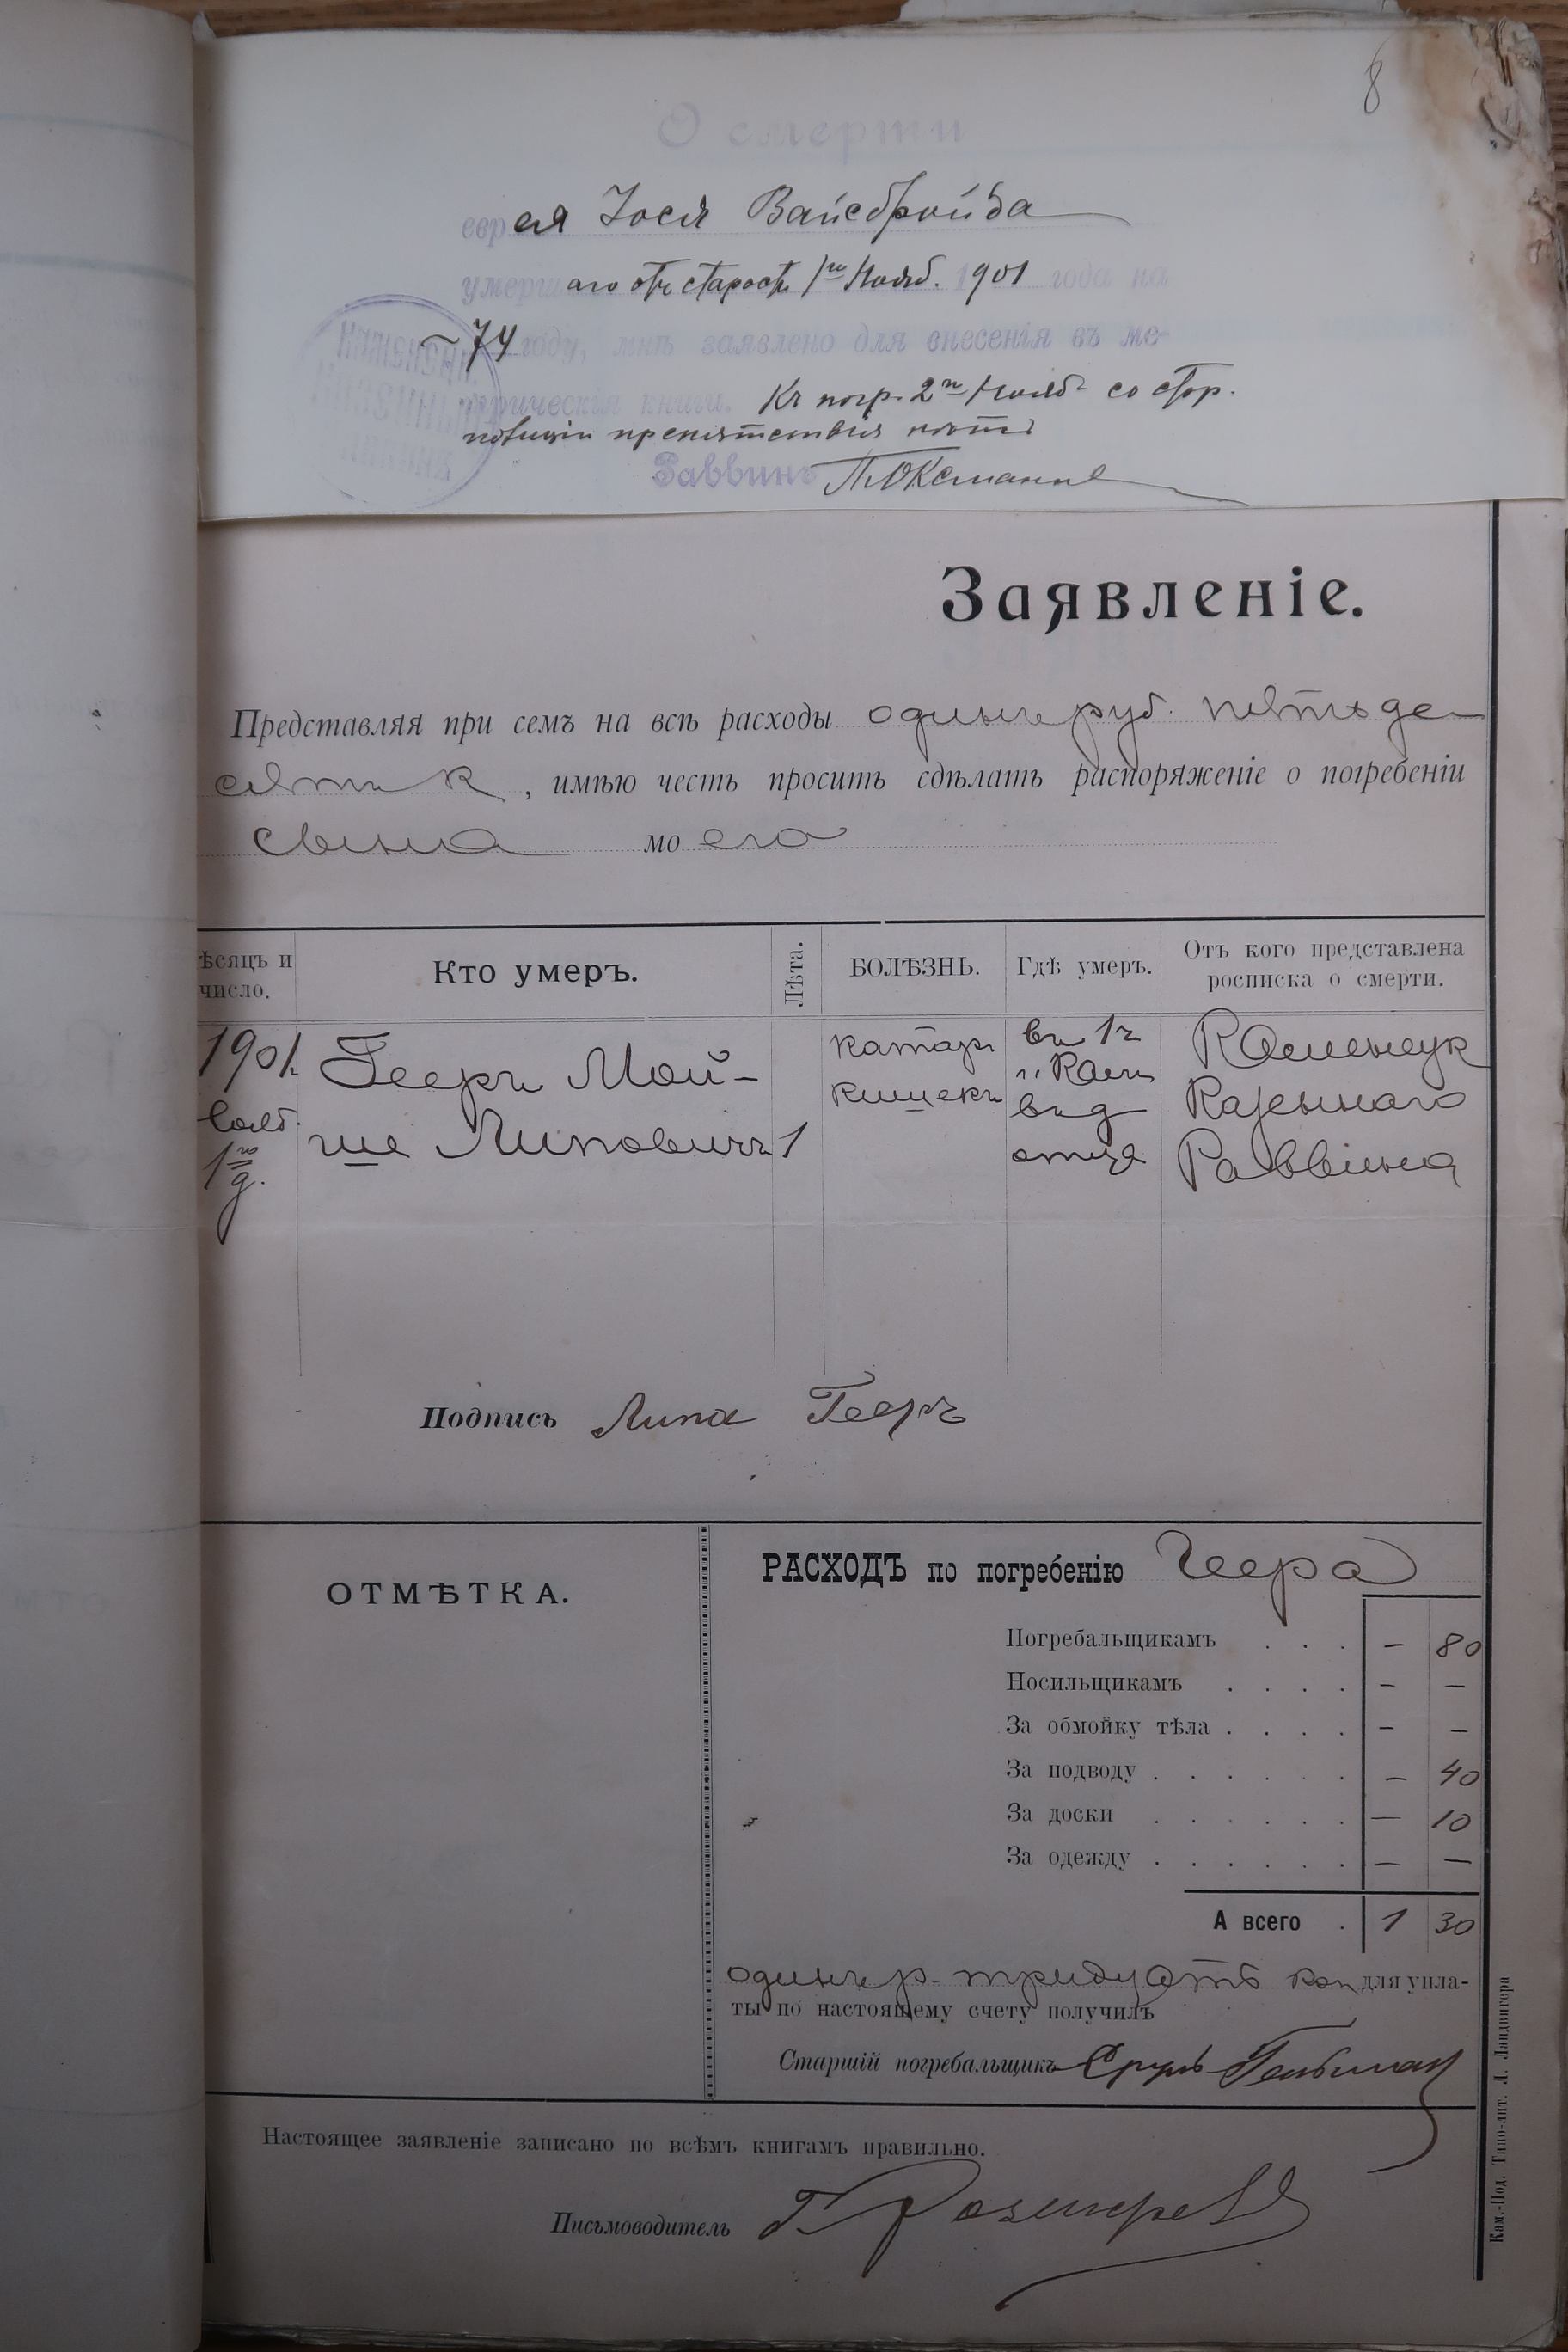 8
О смерти
еврея Іося Вайсбройда
умершаго отъ старости 1го Нояб. 1901 года на
74 году, мнѣ заявлено для внесенія въ ме-
трическія книги. Къ погр. 2го Нояб со стор.
полиціи препятствія нѣтъ
Раввинъ
Заявленіе.
Представляя при семъ на всѣ расходы одинъ руб. пятьде
сятъ к, имѣю честь просить сдѣлать распоряженіе о погребеніи
сына моего
ѣсяцъ и число. Кто умеръ. Лѣта. БОЛѢЗНЬ. Гдѣ умеръ. Отъ кого представлена росписка о смерти.
1901 Гееръ Мой- катаръ въ 1ч
ше Липовичъ 1 кишекъ
1го д. отца
Казеннаго
Раввина
Подпись Липа Гееръ
ОТМѢТКА.
РАСХОДЪ по погребенію Геера
Погребальщикамъ . . . — 80
Носильщикамъ . . . . — —
За обмойку тѣла . . . . — —
За подводу . . . . . . — 40
За доски . . . . . . — 10
За одежду . . . . . . — —
А всего . 1 30
одинъ р. тридцать коп для упла-
ты по настоящему счету получилъ
Старшій погребальщикъ Сруль Гельман
Настоящее заявленіе записано по всѣмъ книгамъ правильно.
Письмоводитель
Кам.-Под. Типо-лит. Л. Ландвигера